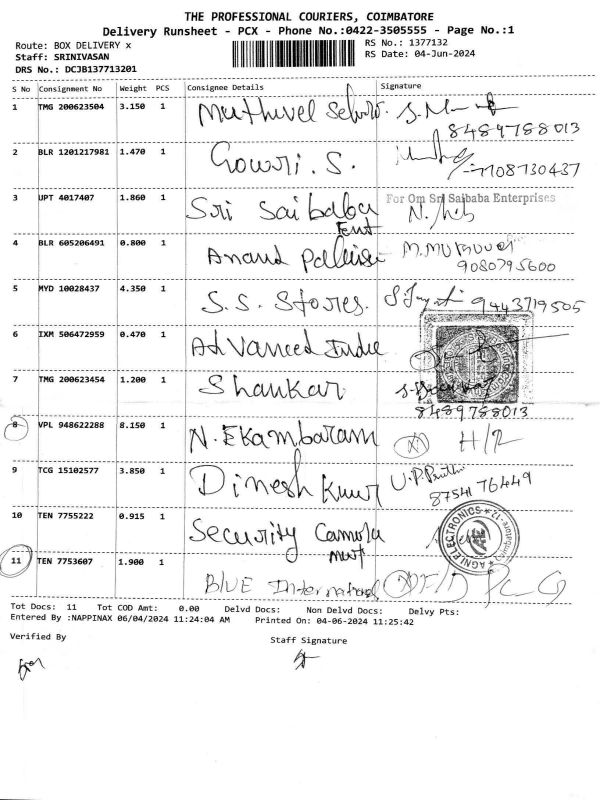 THE PROFESSIONAL COURIERS, COIMBATORE
Delivery Runsheet - PCX - Phone No.:0422-3505555 - Page No.:1
Route: BOX DELIVERY x
RS No.: 1377132
Staff: SRINIVASAN
RS Date: 04-Jun-2024
DRS No.: DCJB137713201
S No Consignment No Weight PCS Consignee Details Signature
1 TMG 200623504 3.150 1 Muthuvel
8489788013
2 BLR 1201217981 1.470 1 Gowri. S.
7708730437
3 UPT 4017407 1.860 1 Sri Saibaba For Om Sri Saibaba Enterprises
Ent
4 BLR 605206491 0.800 1 Anand
9080795600
5 MYD 10028437 4.350 1 S.S. Stores. 9443719505
6 IXM 506472959 0.470 1 Advanced India
7 TMG 200623454 1.200 1 Shankar
8489788013
8 VPL 948622288 8.150 1 N. Ekambaram
9 TCG 15102577 3.850 1 Dinesh Kumar
87541 76449
10 TEN 7755222 0.915 1 Security Camera
AGNI ELECTRONICS
11 TEN 7753607 1.900 1 BLUE International
Tot Docs: 11 Tot COD Amt: 0.00 Delvd Docs: Non Delvd Docs: Delvy Pts:
Entered By :NAPPINAX 06/04/2024 11:24:04 AM Printed On: 04-06-2024 11:25:42
Verified By
Staff Signature